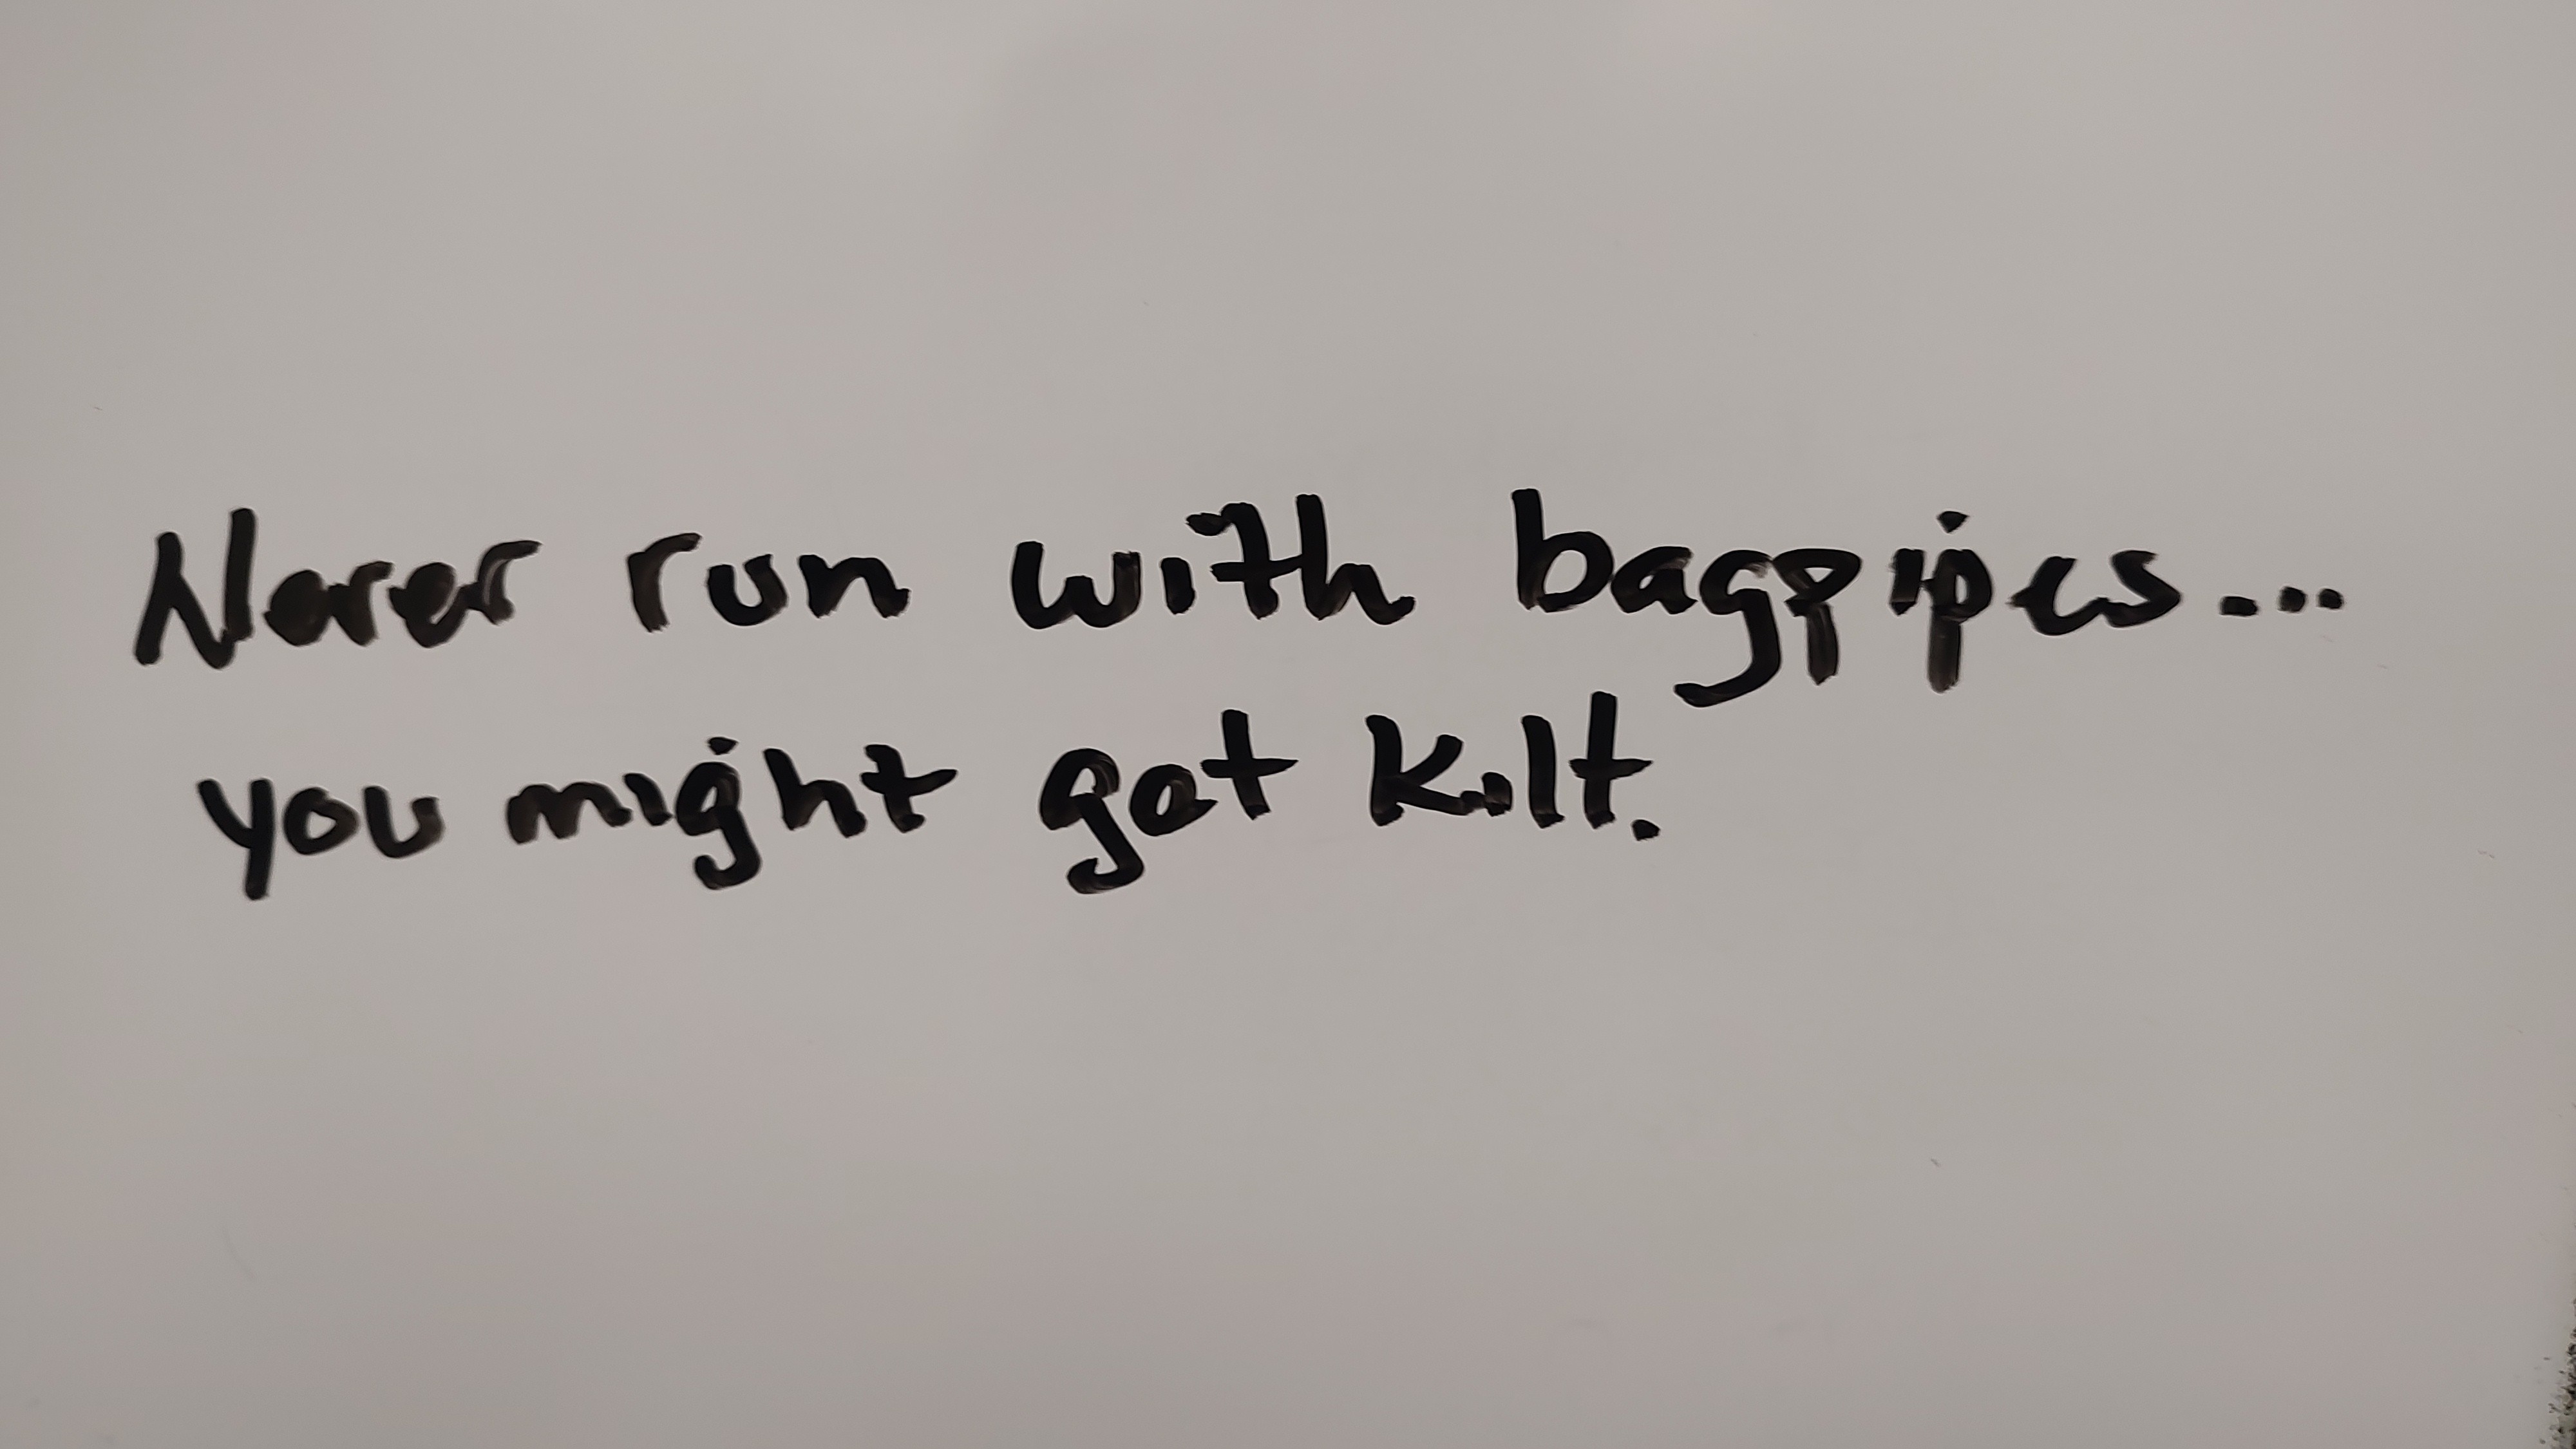 Never run with bagpipes...
you might get kilt.